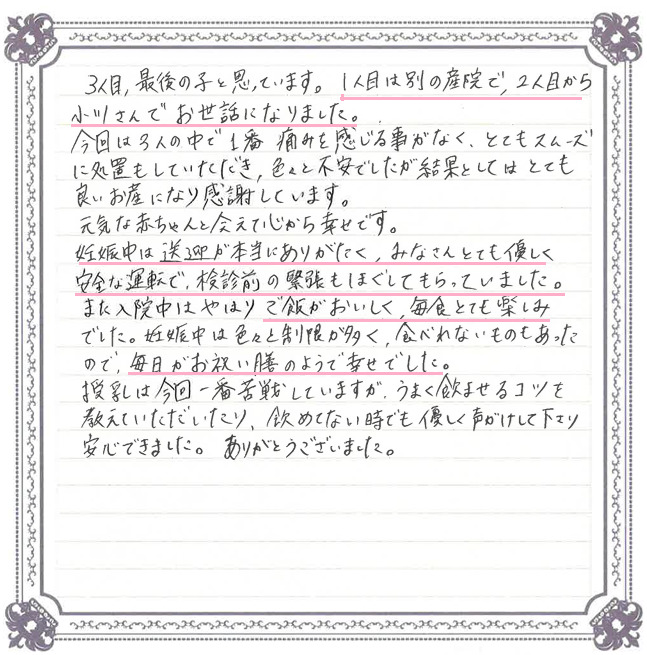 3人目，最後の子と思っています。1人目は別の産院で，2人目から
小川さんでお世話になりました。
今回は3人の中で1番痛みを感じる事がなく、とてもスムーズ
に処置もしていただき，色々と不安でしたが結果としてはとても
良いお産になり感謝しています。
元気な赤ちゃんと会えて心から幸せです。
妊娠中は送迎が本当にありがたく，みなさんとても優しく
安全な運転で，検診前の緊張もほぐしてもらっていました。
また入院中はやはりご飯がおいしく，毎食とても楽しみ
でした。妊娠中は色々と制限が多く，食べれないものもあった
ので，毎日がお祝い膳のようで幸せでした。
授乳は今回一番苦戦していますが，うまく飲ませるコツを
教えていただいたり、飲めてない時でも優しく声がけして下さり
安心できました。ありがとうございました。